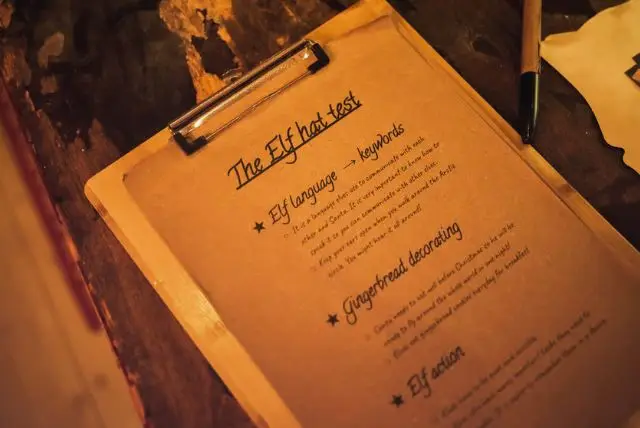 The Elf hat test
★ Elf language → keywords
○ It is a language elves use to communicate with each
other and Santa. It is very important to know how to
crack it so you can communicate with other elves.
○ Keep your ears open when you walk around the Arctic
circle. You might hear it all around!
★ Gingerbread decorating
○ Santa needs to eat well before Christmas so he will be
ready to fly around the whole world in one night!
○ Elves eat gingerbread cookies everyday for breakfast!
★ Elf action